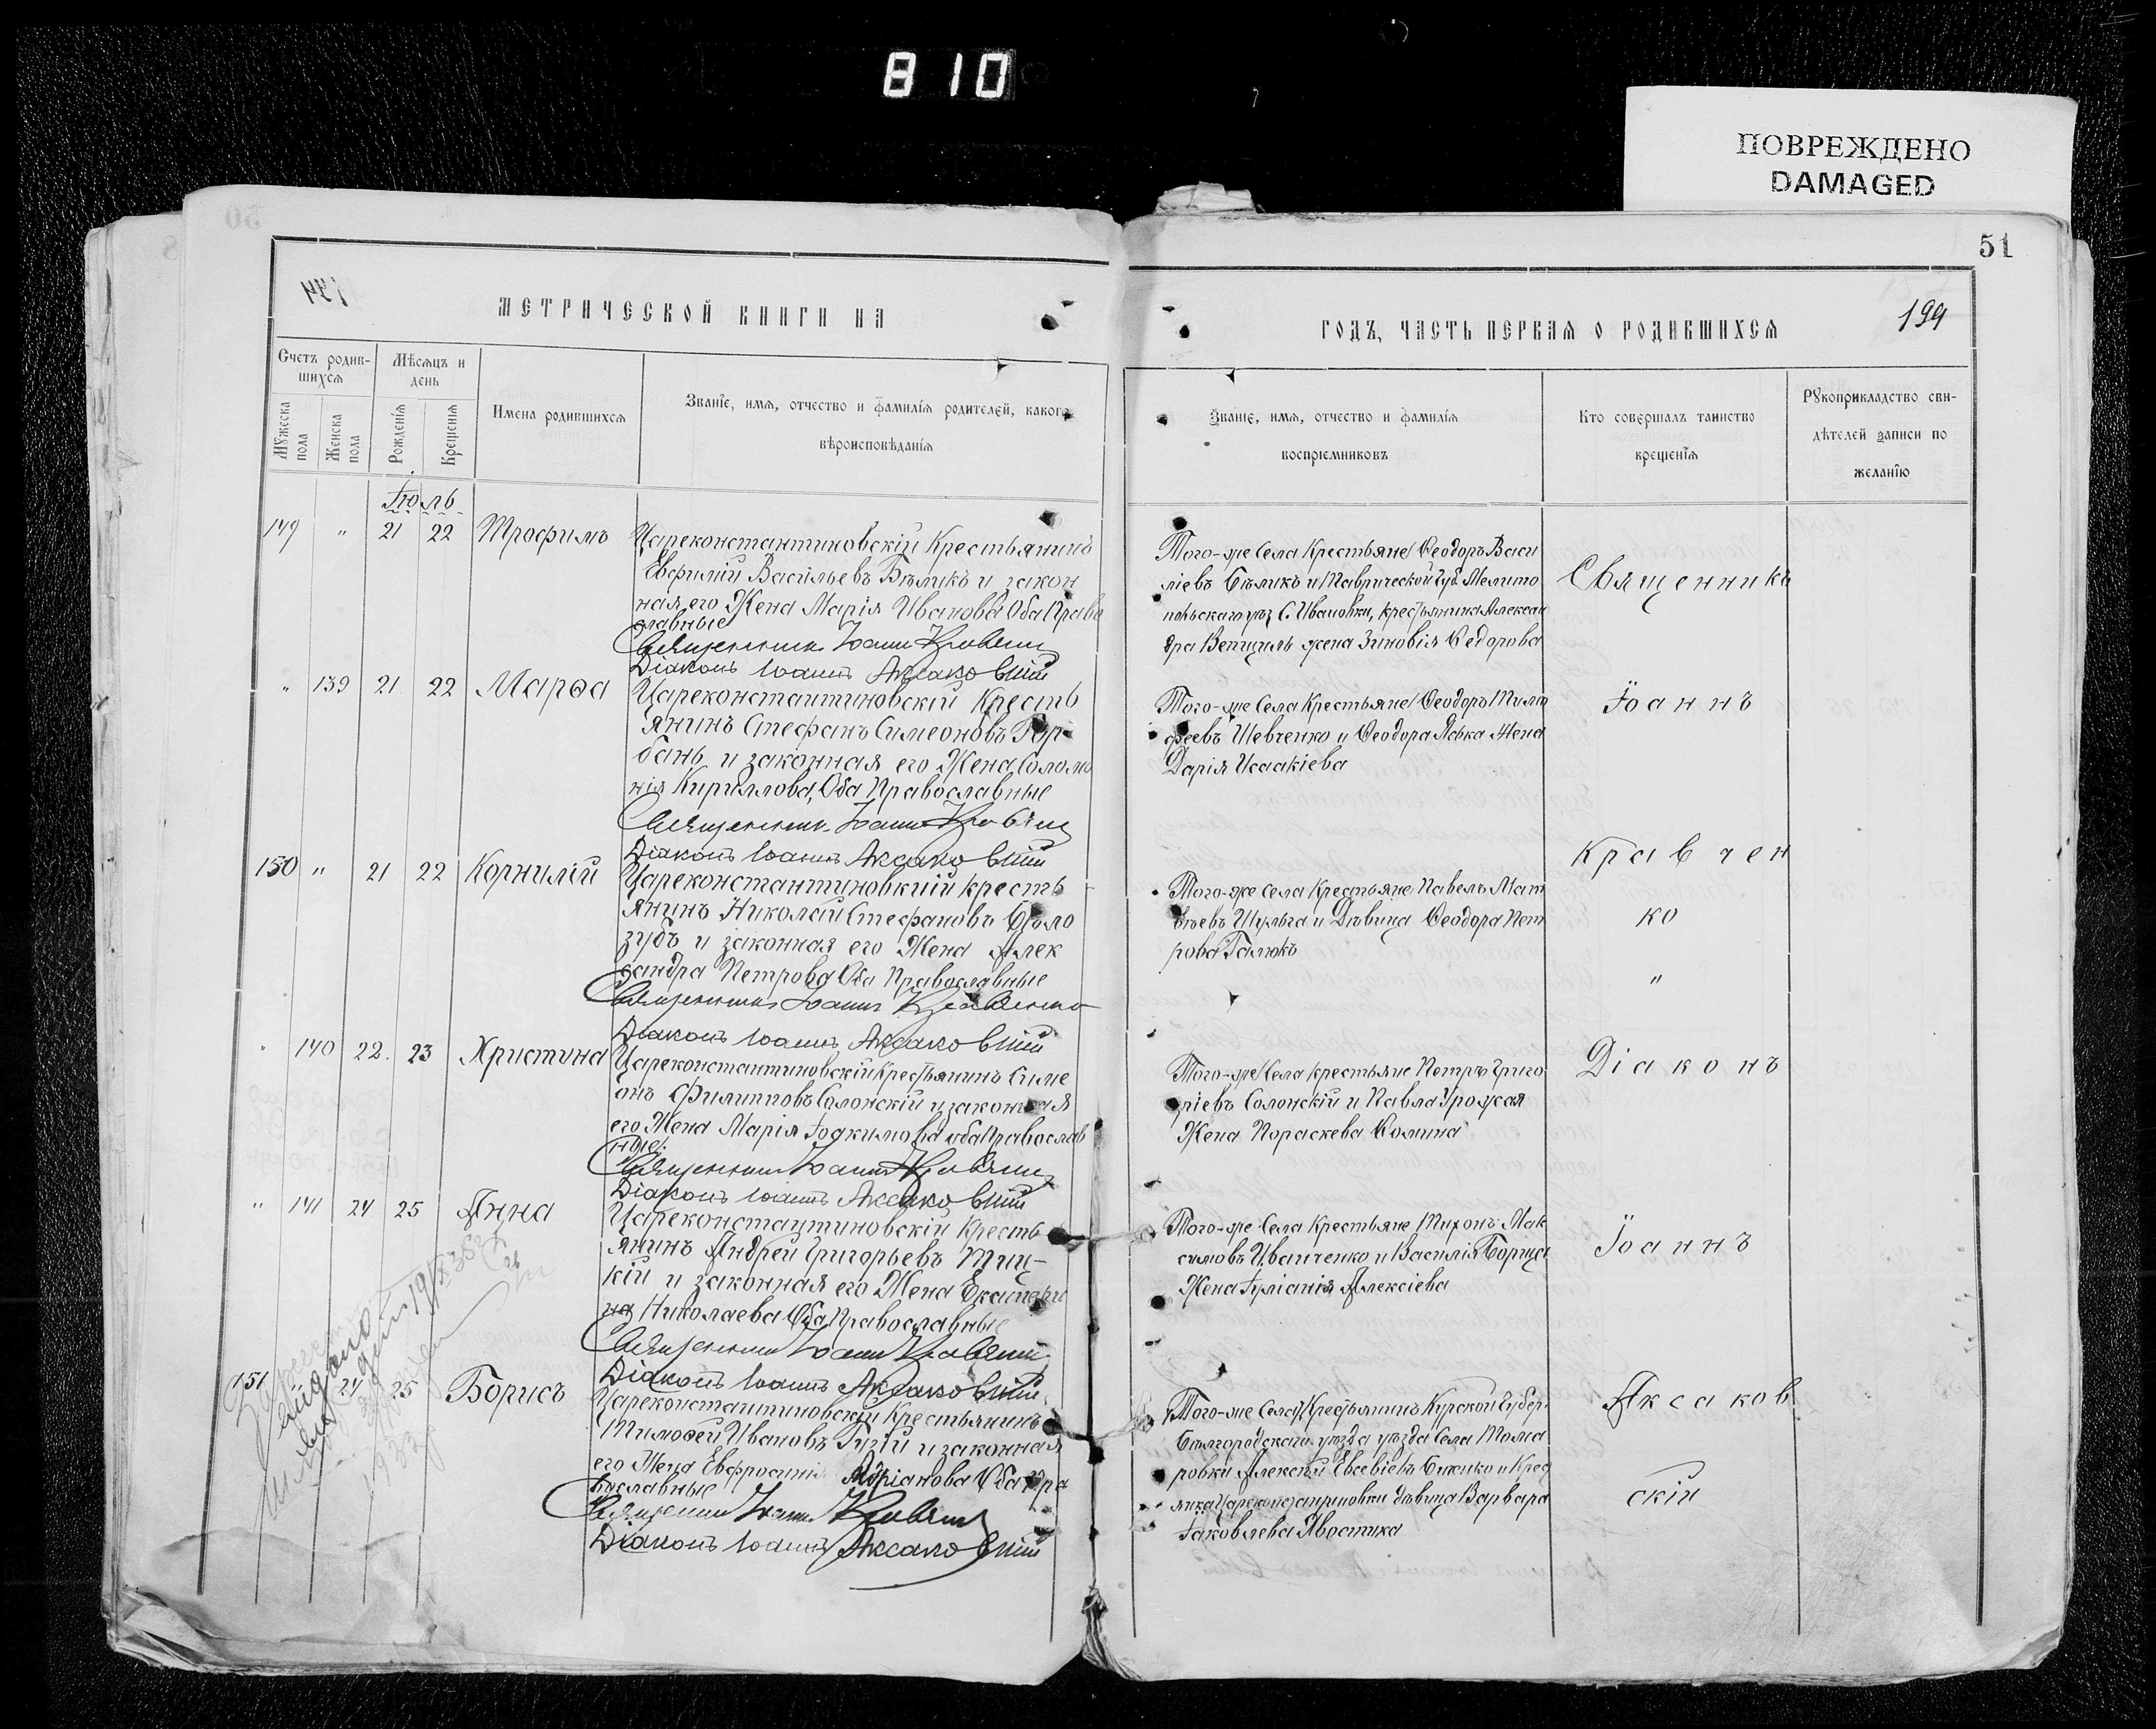 810
ПОВРЕЖДЕНО
DAMAGED
51
199
МЕТРИЧЕСКОЙ КНИГИ НА
ГОДЪ, ЧАСТЬ ПЕРВАЯ О РОДИВШИХСЯ
Счетъ родив-
шихся
Мѣсяцъ и
день
Мужеска
пола
Женска
пола
Рожденія
Крещенія
Имена родившихся
Званіе, имя, отчество и фамилія родителей, какого
вѣроисповѣданія
Званіе, имя, отчество и фамилія
воспріемниковъ
Кто совершалъ таинство
крещенія
Рукоприкладство сви-
дѣтелей записи по
желанію
Іюль
149 " 21 22 Трофимъ
Цареконстантиновскій Крестьянинъ
Евфимій Васильевъ Бѣликъ и закон
ная его Жена Марія Иванова Оба Право
славные
Священникъ Іоаннъ
Діаконъ Іоаннъ Аксаковскій
Того-же Села Крестьяне Ѳеодоръ Васи
ліевъ Бѣликъ и Таврической губ. Мелито
польскаго уѣз С. Ивановки, крестьянина Алексан
дра жена Зиновія Ѳедорова
Священникъ
" 139 21 22 Марѳа
Цареконстантиновскій Кресть
янинъ Стефанъ Симеоновъ Гор
бань и законная его Жена Соломо
нія Кириллова, Оба Православные
Священникъ Іоаннъ
Діаконъ Іоаннъ Аксаковскій
Того-же Села Крестьяне Ѳеодоръ Тимо
феевъ Шевченко и Ѳеодора Жена
Дарія Исаакіева
Іоаннъ
Кравчен
150 " 21 22 Корнилій
Цареконстантиновкий кресть
янинъ Николай Стефановъ Бѣло
зубъ и законная его Жена Алек
сандра Петрова Оба Православные
Священникъ Іоаннъ Кравченко
Діаконъ Іоаннъ Аксаковскій
Того-же Села Крестьяне Павелъ Мат
вѣевъ Шульга и Дѣвица Ѳеодора Пет
рова Галюкъ
ко
"
" 140 22 23 Христина
Цареконстантиновскій Крестьянинъ Симе
онъ Филипповъ Солонскій и законная
его Жена Марія Іоакимова оба Православ
ные.
Священникъ Іоаннъ
Діаконъ Іоаннъ Аксаковскій
Того-же Села крестьяне Петръ Григо
ріевъ Солонскій и Павла
Жена Пораскева Ѳомина
Діаконъ
" 141 24 25 Анна
Цареконстантиновскій Кресть
янинъ Андрей Григорьевъ
кій и законная его Жена Екатери
на Николаева Оба Православные
Священникъ Іоаннъ
Діаконъ Іоаннъ Аксаковскій
Того-же Села Крестьяне Тихонъ Мак
симовъ Иванченко и Василія Борща
Жена Іуліанія Алексіева
Іоаннъ
151 24 25 Борисъ
Цареконстантиновскій Крестьянинъ
Тимоѳей Ивановъ и законная
его Жена Евфросинія Адріанова Оба Пра
вославные
Священникъ Іоаннъ
Діаконъ Іоаннъ Аксаковскій
Того-же Села, Крестьянинъ Курской Губер
Бѣлгородскаго уѣзда уѣзда Села Тома
ровки Алексѣй Евсевіевъ и Крес
дѣвица Варвара
Іаковлева
Аксаков
скій